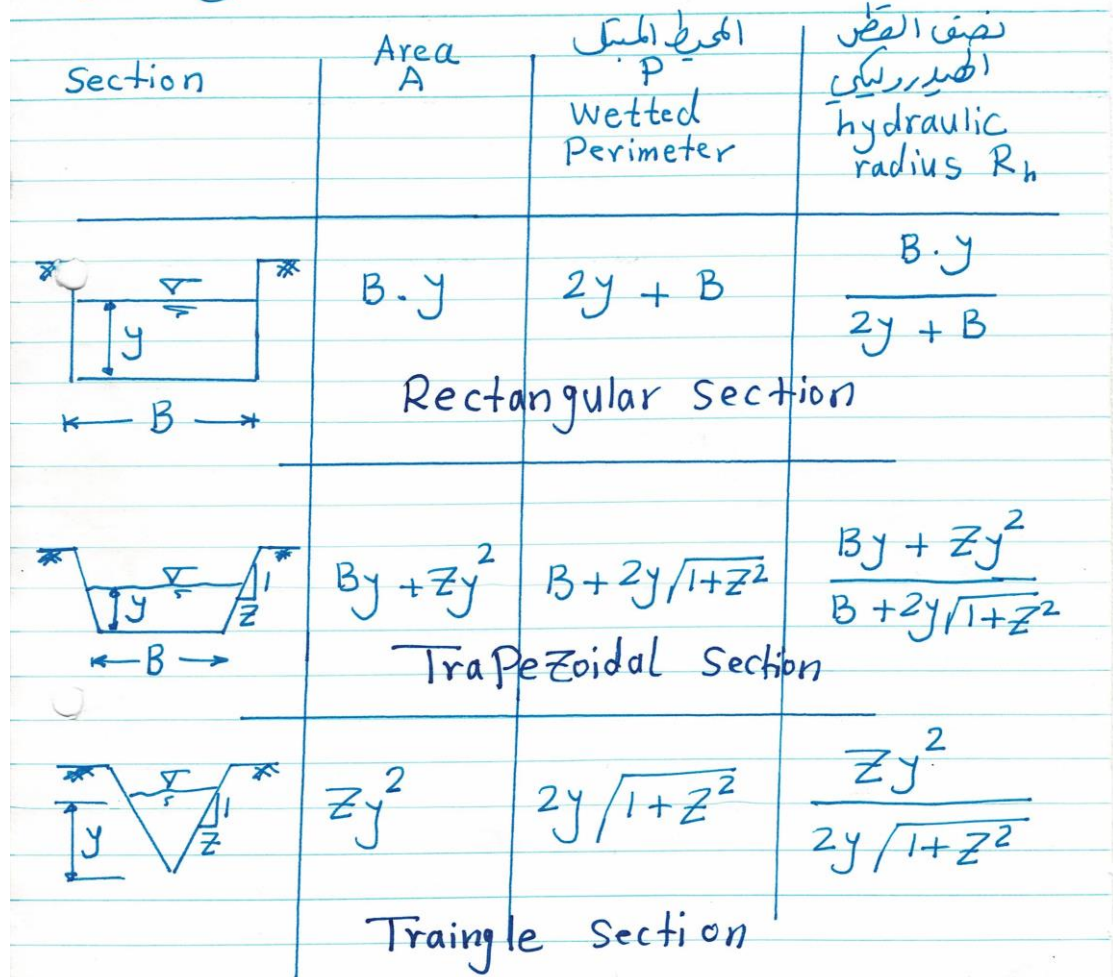 Section
Area
A
المحيط المبتل
P
Wetted
Perimeter
نصف القطر
الهيدروليكي
hydraulic
radius Rₕ
y
B
B.y
2y + B
B.y
2y + B
Rectangular section
y
1
Z
B
By + Zy²
B + 2y√1+Z²
By + Zy²
B + 2y√1+Z²
TraPeZoidal Section
y
1
Z
Zy²
2y√1+Z²
Zy²
2y√1+Z²
Traingle Section